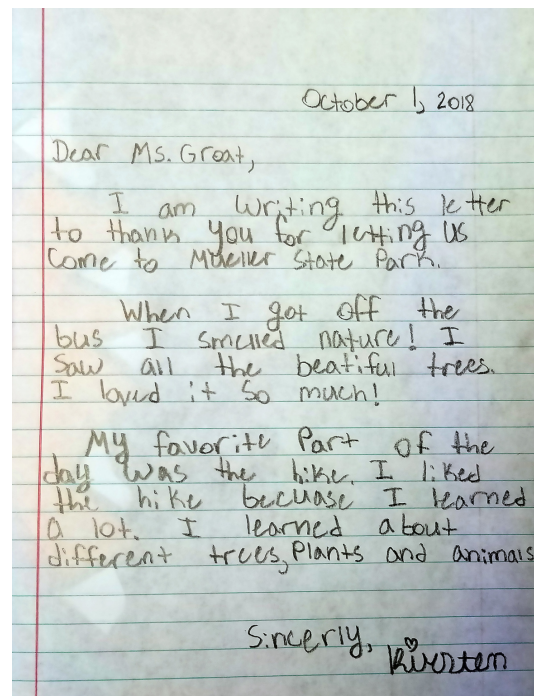 October 1, 2018
Dear Ms. Groat,
I am writing this letter
to thank you for letting us
come to Mueller State Park.
When I got off the
bus I smelled nature! I
saw all the beatiful trees.
I loved it so much!
My favorite Part of the
day was the hike. I liked
the hike becuase I learned
a lot. I learned about
different trees, Plants and animals
Sincerly,